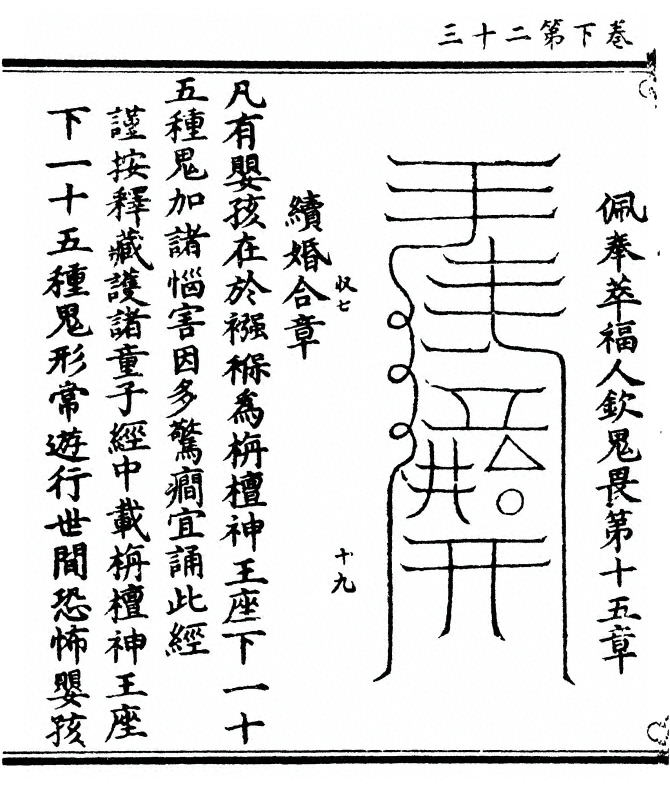 卷下第二十三
佩奉萃福人欽鬼畏第十五章
収七
十九
續婚合章
凡有嬰孩在於襁褓為栴檀神王座下一十
五種鬼加諸惱害因多驚癇宜誦此經
謹按釋藏護諸童子經中載栴檀神王座
下一十五種鬼形常遊行世間恐怖嬰孩